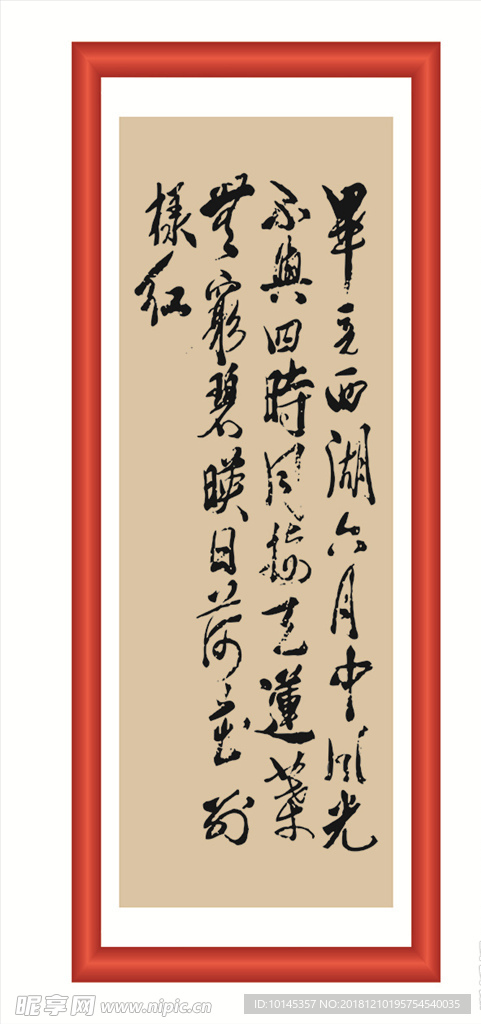 畢竟西湖六月中風光
不與四時同接天蓮葉
無窮碧暎日荷花別
樣紅
昵享网 www.nipic.cn
ID:10145357 NO:20181210195754540035